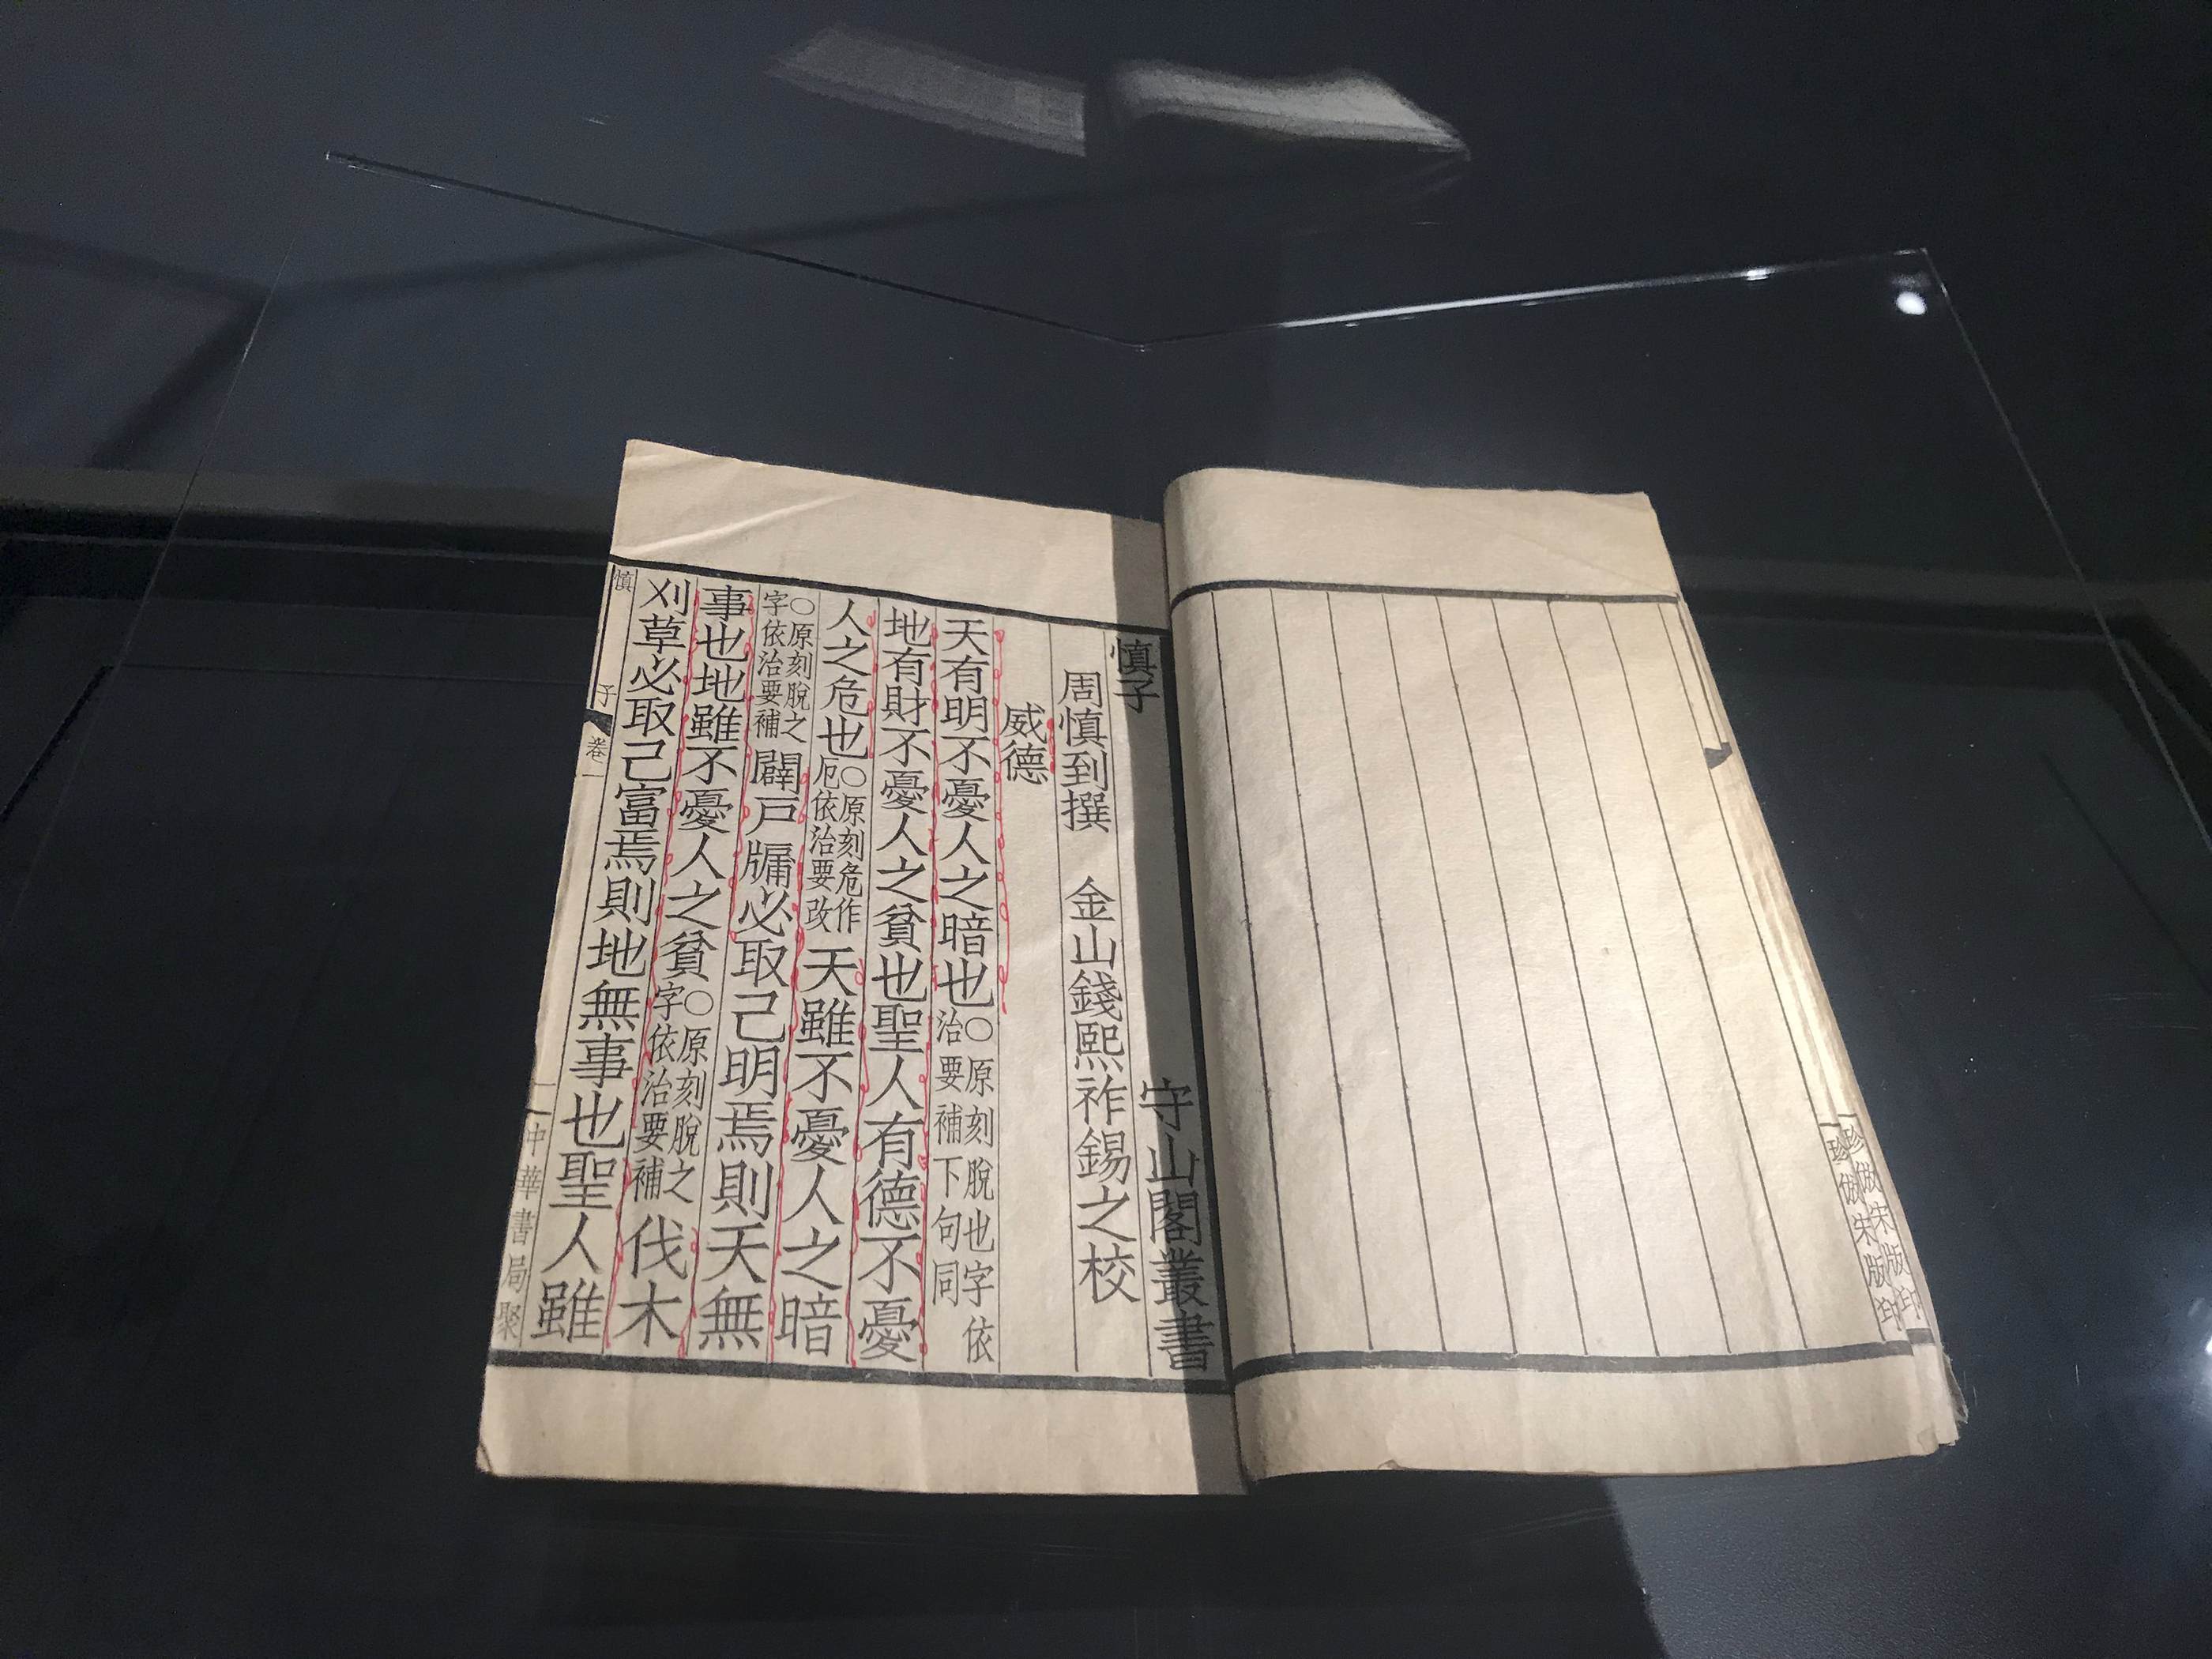 珍倣宋版印
珍倣宋版印
慎子　守山閣叢書
周慎到撰　金山錢熙祚錫之校
威德
天有明不憂人之暗也○原刻脫也字依治要補下句同
地有財不憂人之貧也聖人有德不憂
人之危也○原刻危作厄依治要改天雖不憂人之暗
○原刻脫之字依治要補闢戶牖必取己明焉則天無
事也地雖不憂人之貧○原刻脫之字依治要補伐木
刈草必取己富焉則地無事也聖人雖
慎子　卷一　一　中華書局聚